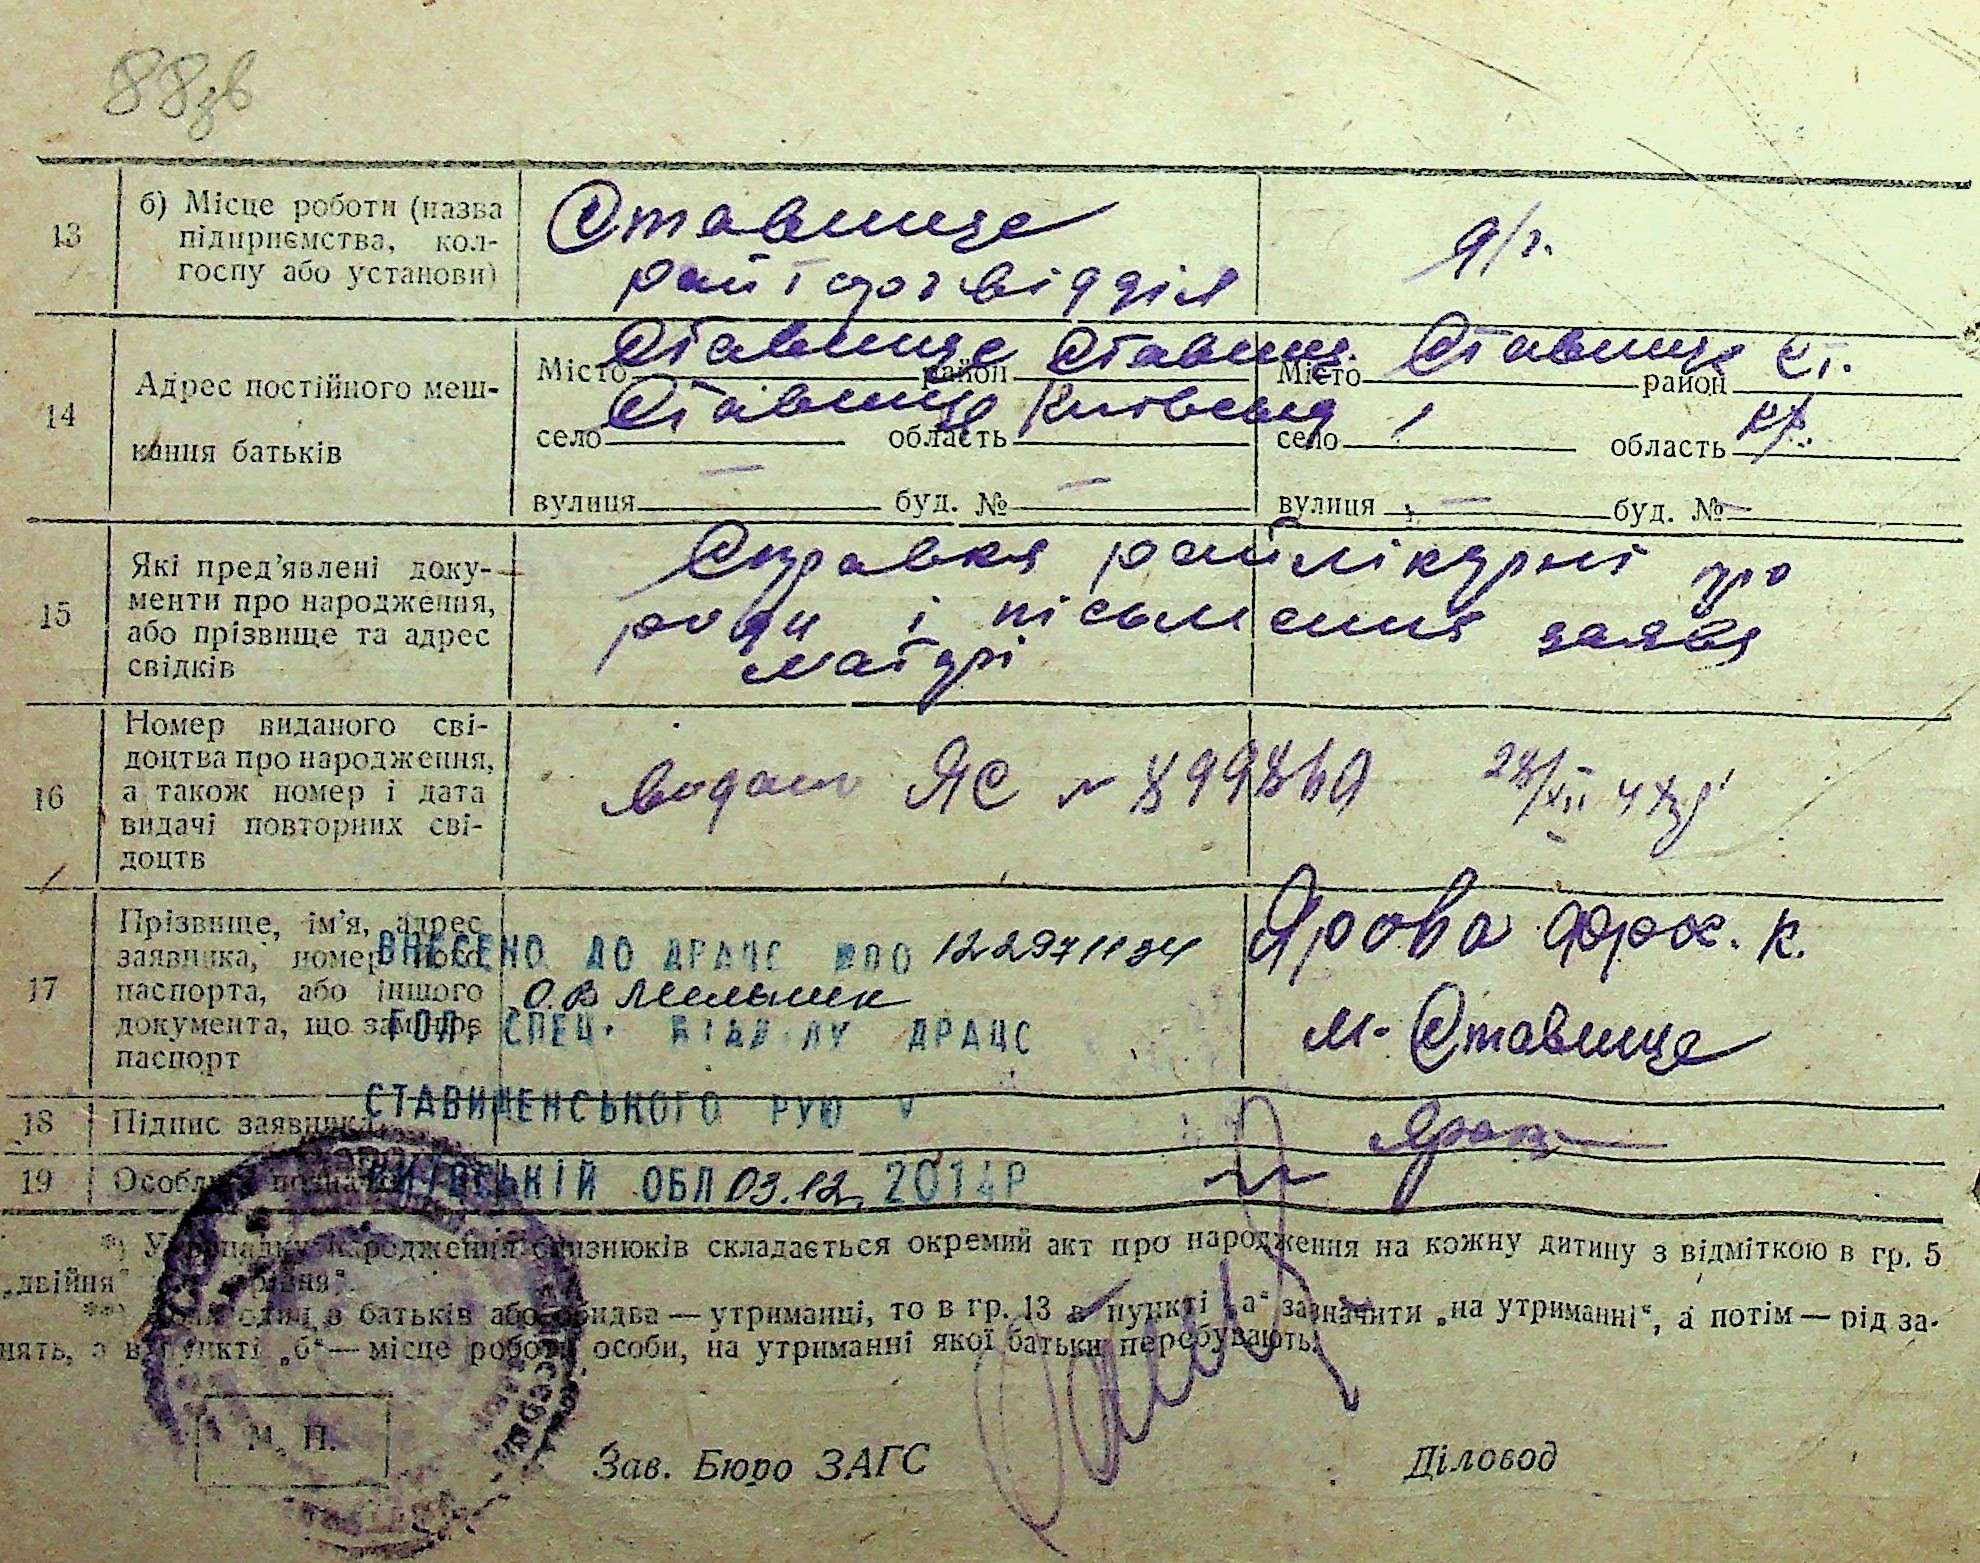 88зв
13
б) Місце роботи (назва
підприємства, кол-
госпу або установи)
Ставище
райторгвідділ
д/г.
14
Адрес постійного меш-
кання батьків
Місто Ставище район Ставищ.
село Ставище область Київська
вулиця — буд. № —
Місто Ставище район Ст.
село область К/
вулиця — буд. № —
15
Які пред'явлені доку-
менти про народження,
або прізвище та адрес
свідків
Справка райлікурні про
роди і письмення заява
матері
16
Номер виданого сві-
доцтва про народження,
а також номер і дата
видачі повторних сві-
доцтв
видано ЯС №
17
Прізвище, ім'я, адрес
заявника, номер його
паспорта, або іншого
документа, що замінює
паспорт
Ярова Фрос. К.
м. Ставище
ВНЕСЕНО ДО ДРАЦС ЮПО 122971134
О.В Мельник
ГОЛ. СПЕЦ. ВІДДІЛУ ДРАЦС
СТАВИЩЕНСЬКОГО РУЮ У
КИЇВСЬКІЙ ОБЛ 03.12. 2014Р
18
Підпис заявника
19
Особливі позначки
*) У випадку народження близнюків складається окремий акт про народження на кожну дитину з відміткою в гр. 5
„двійня“ „трійня“.
**) Коли один з батьків або обидва — утриманці, то в гр. 13 в пункті „а“ зазначити „на утриманні“, а потім — рід за-
нять, а в пункті „б“ — місце роботи особи, на утриманні якої батьки перебувають.
М. П.
Зав. Бюро ЗАГС
Діловод